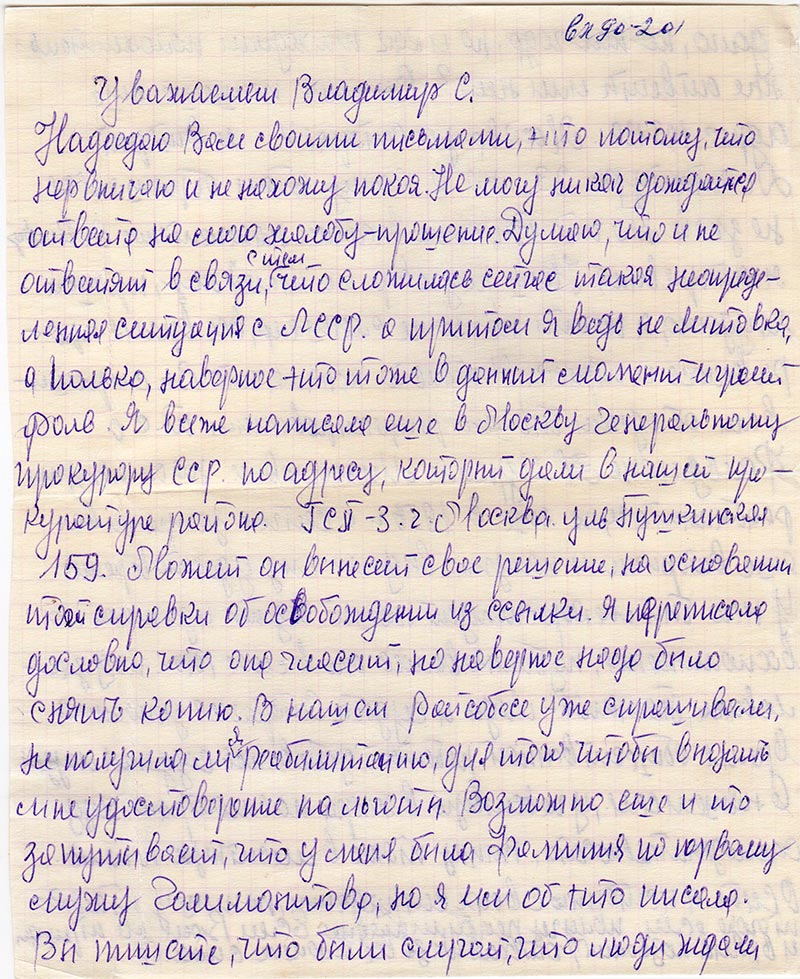 вх до-201
Уважаемый Владимир С.
Надоедаю Вам своими письмами, это потому, что
нервничаю и не нахожу покоя. Не могу никак дождатся
ответа на мою жалобу-прошение. Думаю, что и не
ответят в связи, с тем что сложилась сейчас такая неопреде-
ленная ситуация с ЛССР. а притом я ведь не литовка,
а полька, наверное это тоже в данный момент играет
роль. Я всеже написала еще в Москву Генеральному
прокурору ССР. по адресу, который дали в нашей про-
куратуре района. ГСП-3. г. Москва уль Пушкинская
159. Может он вынесет свое решение, на основании
той справки об освобождении из ссылки. Я переписала
дословно, что она гласит, но наверное надо было
снять копию. В нашем райсобесе уже спрашивали,
не получила ли я реабилитацию, для того чтобы выдать
мне удостоверение на льготы. Возможно еще и то
запутывает, что у меня была фамилия по первому
мужу Галимонтова, но я им об это писала.
Вы пишите, что были случаи, что люди ждали